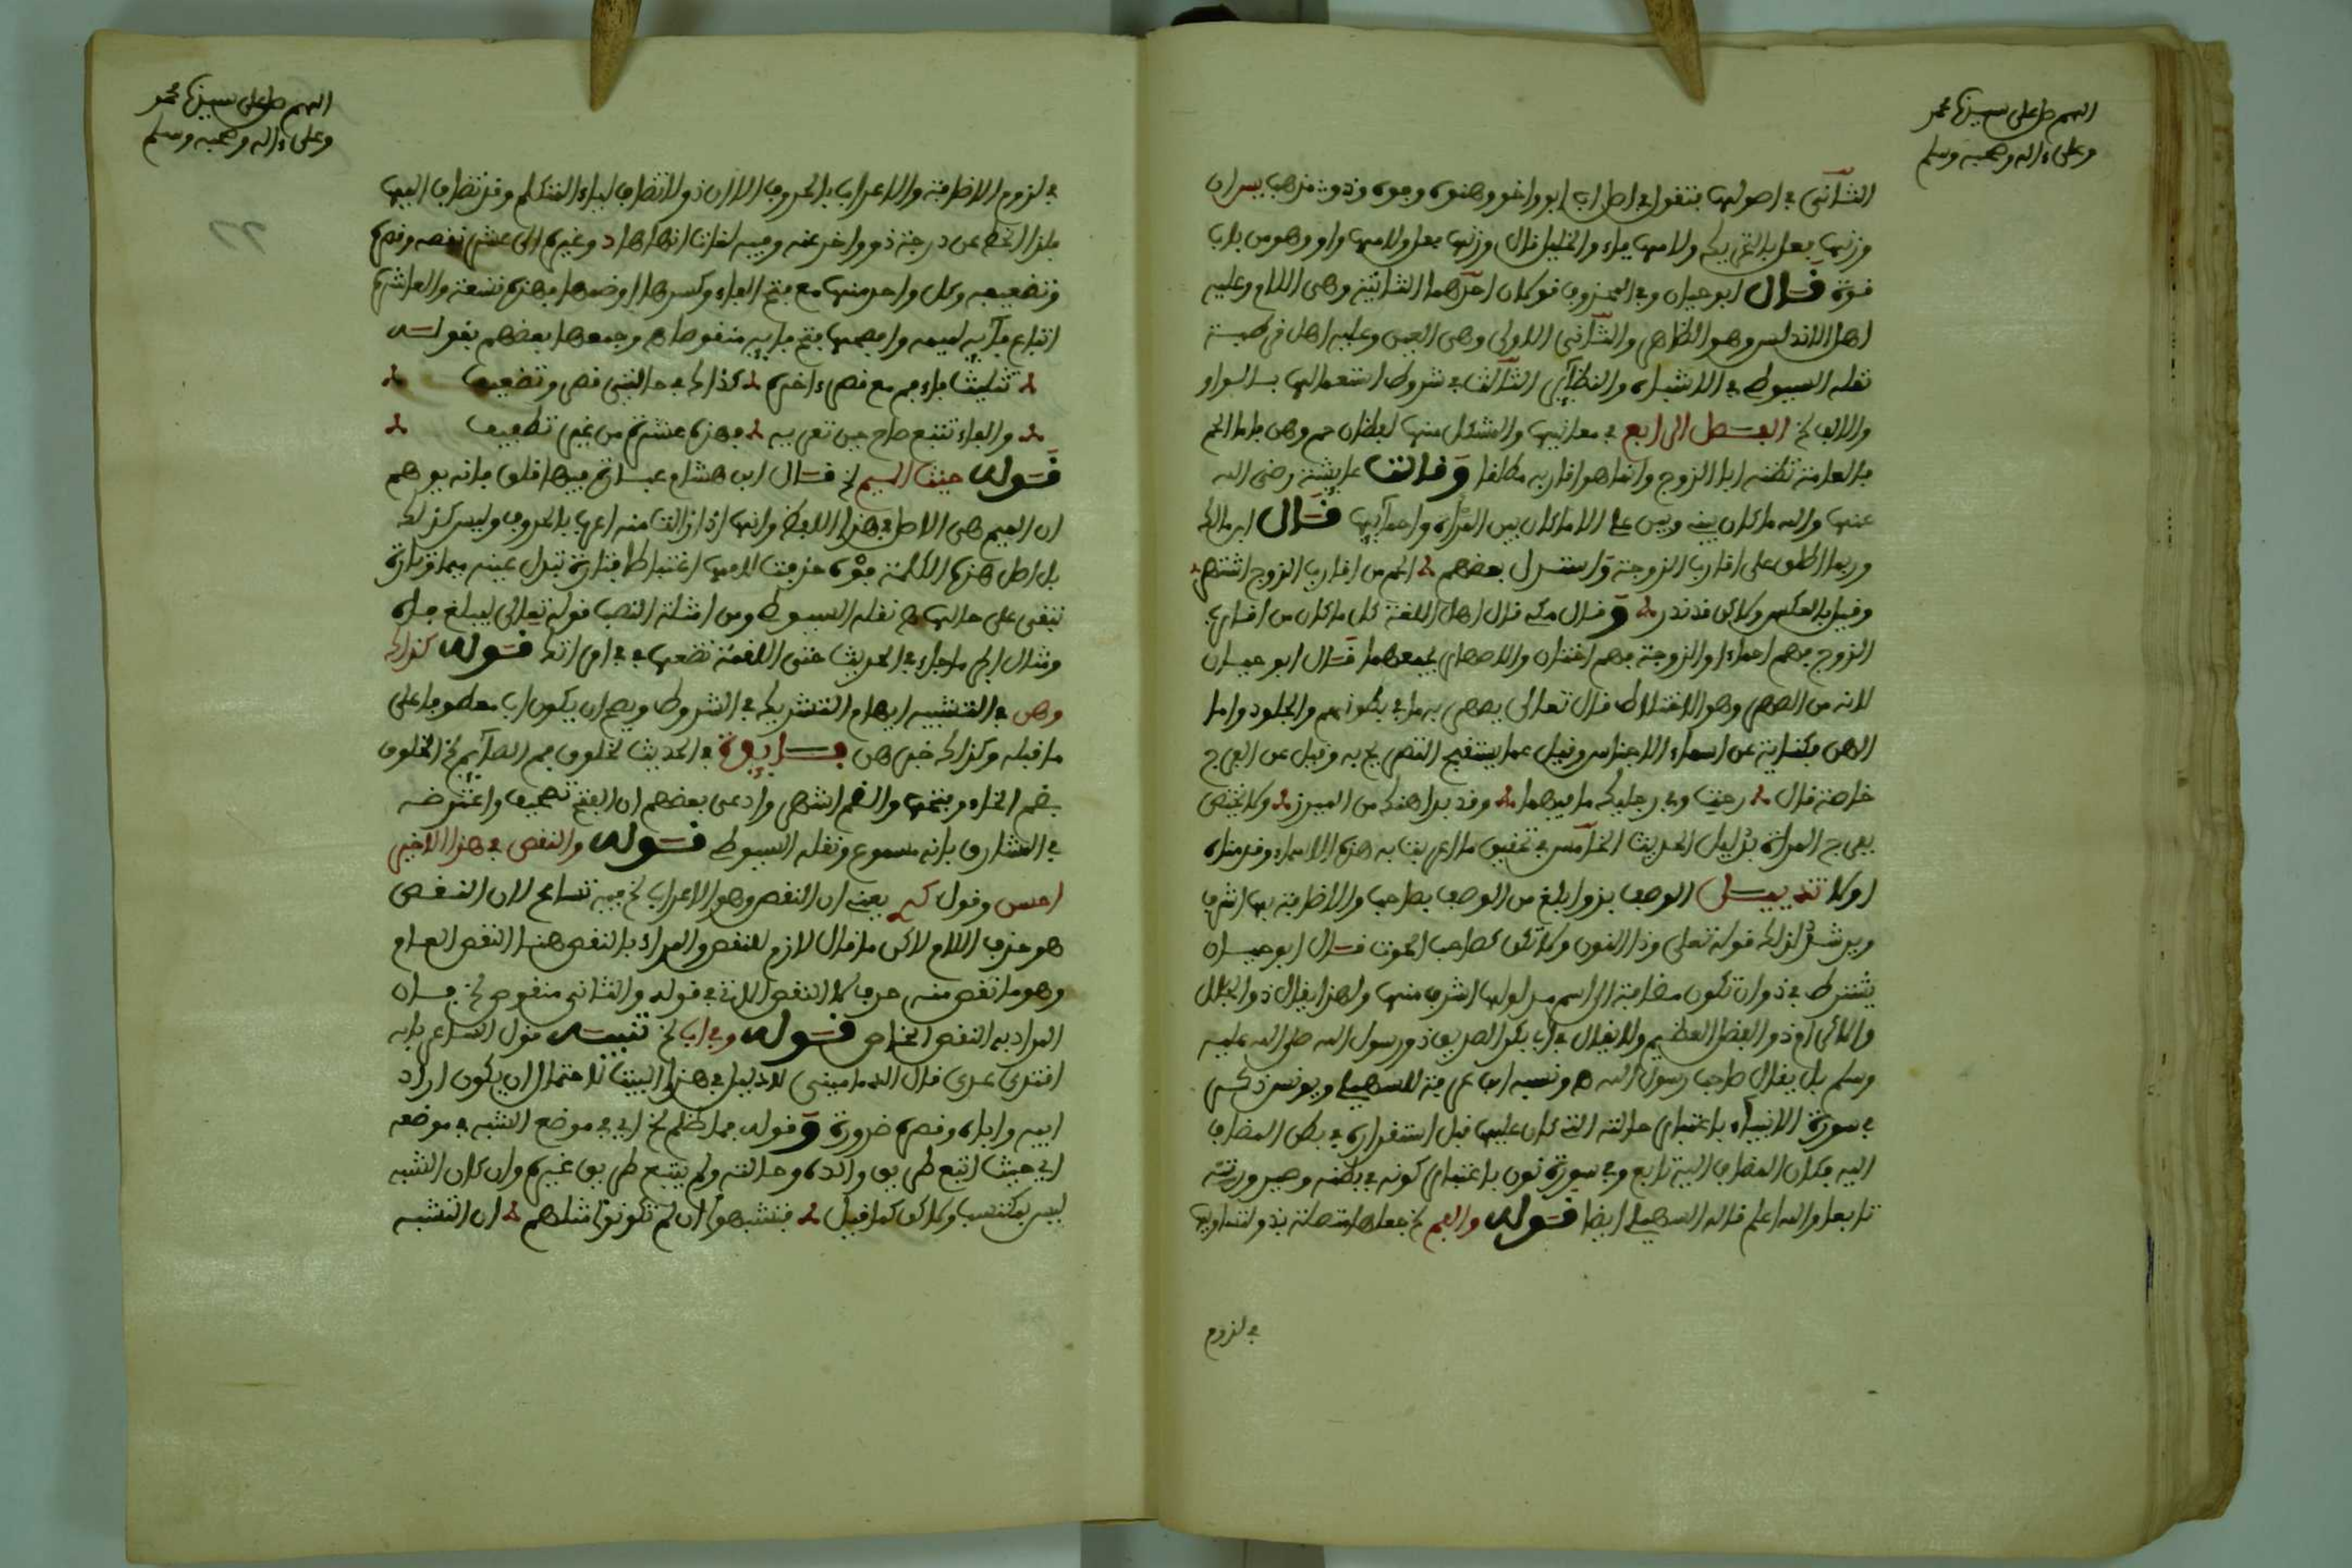 اللهم صل على سيدنا محمد
وعلى ءاله وصحبه وسلم
الثاني في اصولها فنقول في اصل اب ابو واخو وهنو وذو مذهب ان
وزنها فعل بالتحريك ولامها ياء والخليل قال وزنها فعل ولامها واو وهو من باب
قوة قال ابو حيان وفي المحذوف قولان احدهما الثانية وهي اللام وعليه
اهل الاندلس وهو الظاهر والثاني الاولى وهي العين وعليه اهل قرطبة
نقله السيوطي في الاشباه والنظائر الثالث في شروط استعمالها بالواو
والالف الخ الفصل الرابع في معانيها والمشكل منها لفظان حم وهن فاما الحم
فالعامة تظنه ابا الزوج وانما هو اقاربه مطلقا وقالت عايشة رضي الله
عنها والله ما كان بيني وبين علي الا ما كان بين المرأة واحمائها قال ابن مالك
وربما اطلق على اقارب الزوجة واستدل بعضهم الحم من اقارب الزوج اشتهر
وقيل بالعكس ولاكن قد ندر وقال مكي قال اهل اللغة كل ما كان من اقارب
الزوج فهم احماء والزوجة فهم اختان والاصهار يجمعهما قال ابو حيان
لانه من الصهر وهو الاختلاط قال تعالى يصهر به ما في بطونهم والجلود واما
الهن فكناية عن اسماء الاجناس وقيل عما يستقبح التصريح به وقيل عن الفرج
خاصة قال رحت وفي رجليك ما فيهما وقد بدا هنك من الميزر ولا يختص
بفرج المرأة بدليل الحديث الخامس في تحقيق ما اعربت به هذه الاسماء وقد مناه
اولا تذييل الوصف بذو ابلغ من الوصف بصاحب والاضافة بها اشرف
ويرشد لذلك قوله تعلى وذا النون ولا تكن كصاحب الحوت قال ابو حيان
يشترط في ذو ان تكون مضافة الى اسم مدلولها اشرف منها ولهذا يقال ذو الجلال
والاكرام ذو الفضل العظيم ولا يقال في ابي بكر الصديق ذو رسول الله صلى الله عليه
وسلم بل يقال صاحب رسول الله ونسبه ابن عرفة للسهيلي ويونس ذكر
في سورة الانبياء باعتبار حالته التي كان عليها قبل استقراره في بطن المضاف
اليه فكان المضاف اليه تابع وفي سورة نون باعتبار كونه في بطنه وصيرورته
تابعا والله اعلم قاله السهيلي ايضا قوله والفم الخ جعلها متصلة بذو لتساويه
في لزوم
اللهم صل على سيدنا محمد
وعلى ءاله وصحبه وسلم
في لزوم الاضافة والاعراب بالحروف الا ان ذو لا تضاف لياء المتكلم وقد تضاف اليها
فلذا انحط عن درجة ذو واخر عنه وفيه لغات انهاها د وغيره الى عشر نقصه وقصره
وتضعيفه وكل واحد منها مع فتح الفاء وكسرها وضمها فهذه تسعة والعاشرة
اتباع فائه لميمه وافصحها فتح فائه منقوصا ه وجمعها بعضهم بقوله
تثليث فاء فم مع قصر ءاخره كذاك في حالتي نقص وتضعيف
والفاء تتبع صاح حين تعربه فهذه عشرة من غير تضعيف
قوله حيث الميم الخ قال ابن هشام عبارته فيها قلق فانه يوهم
ان الميم هي الاصل في هذا اللفظ وانها اذا زالت منه اعرب بالحروف وليس كذلك
بل اصل هذه الكلمة فوه حذفت لامها اعتباطا فتارة تبدل عينه ميما وتارة
تبقى على حالها ه نقله السيوطي ومن امثلة النصب قوله تعالى ليبلغ فاه
ومثال الجر ما جاء في الحديث حتى اللقمة تضعها في في امراتك قوله كذاك
وهن في التشبيه ايهام التشريك في الشروط ويصح ان يكون اب معطوفا على
ما قبله وكذاك خبر هن فايدة في الحديث لخلوف فم الصائم الخ الخلوف
بضم الخاء وبفتحها والضم اشهر وادعى بعضهم ان الفتح تصحيف واعترضه
في المشارق بانه مسموع ونقله السيوطي قوله والنقص في هذا الاخير
احسن وقول يعني ان النقص وهو الاعراب الخ فيه تسامح لان النقص
هو حذف اللام لاكن ما قال لازم للنقص والمراد بالنقص هنا النقص العام
وهو ما نقص منه حرف لا النقص الاتي في قوله والثاني منقوص الخ فان
المراد به النقص الخاص قوله وفي اب الخ تنبيه قول الشاعر بابه
اقتدى عدي قال الدماميني لا دليل في هذا البيت لاحتمال ان يكون اراد
ابيه واباه وقصره ضرورة وقوله فما ظلم الخ اي في موضع الشبه في موضعه
اي حيث اتبع طريق والده وحالته ولم يتبع طريق غيره وان كان الشبه
ليس بمكتسب ولاكن كما قيل فتشبهوا ان لم تكونوا مثلهم ان التشبه